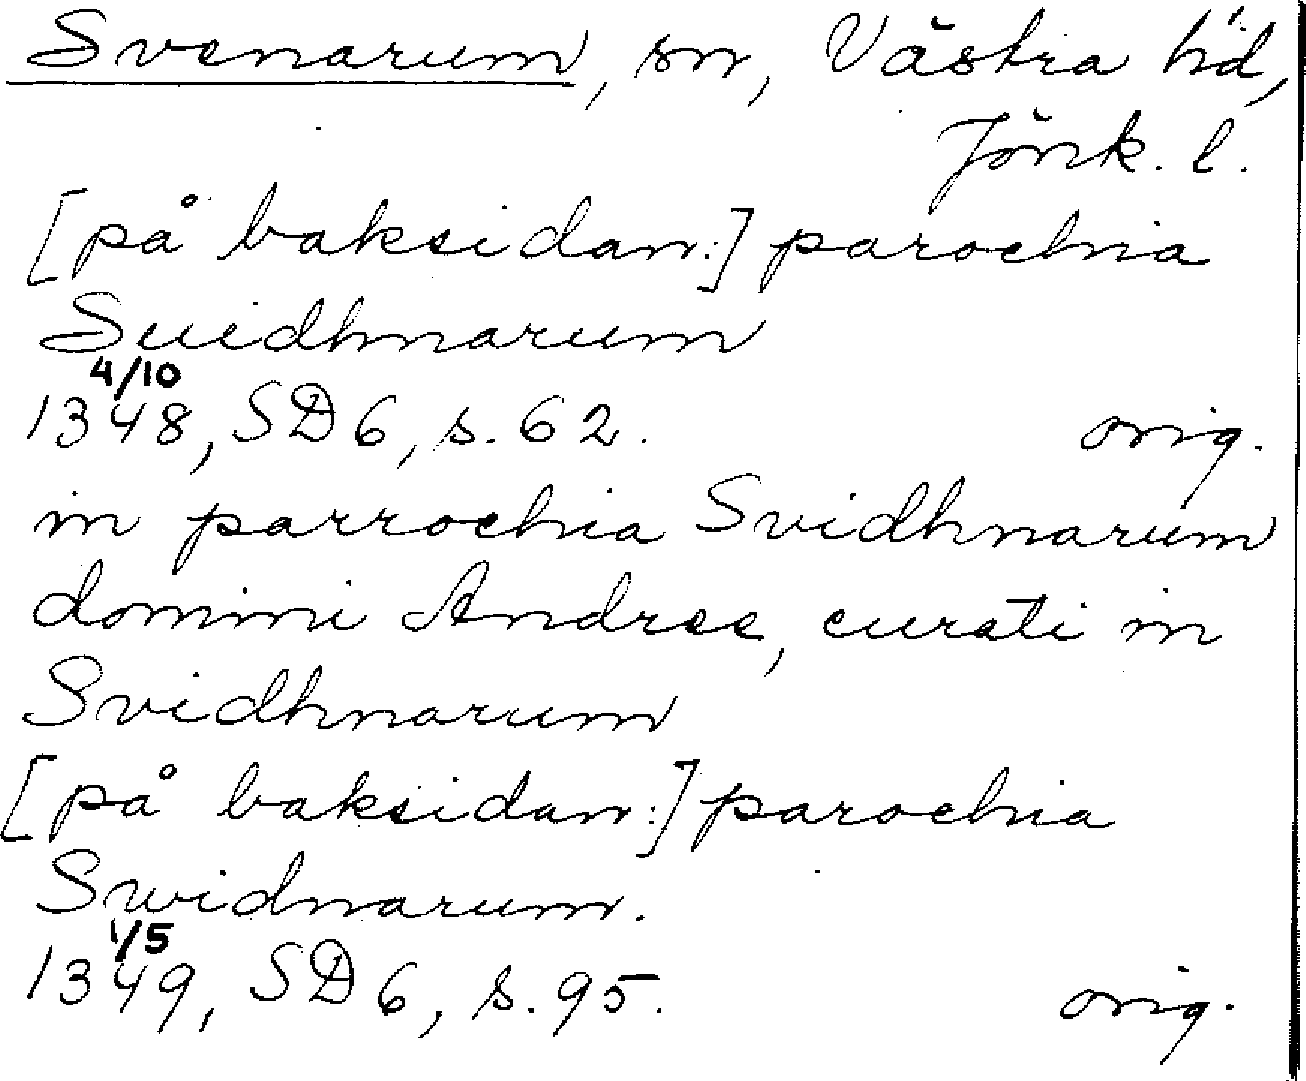 Svenarum, sn, Västra hd,
Jönk. l.
[på baksidan:] parochia
Suidhnarum
4/10
1348, SD 6, s. 62. orig.
in parrochia Svidhnarum
domini Andree, curati in
Svidhnarum
[på baksidan:] parochia
Swidnarum.
1/5
1349, SD 6, s. 95. orig.